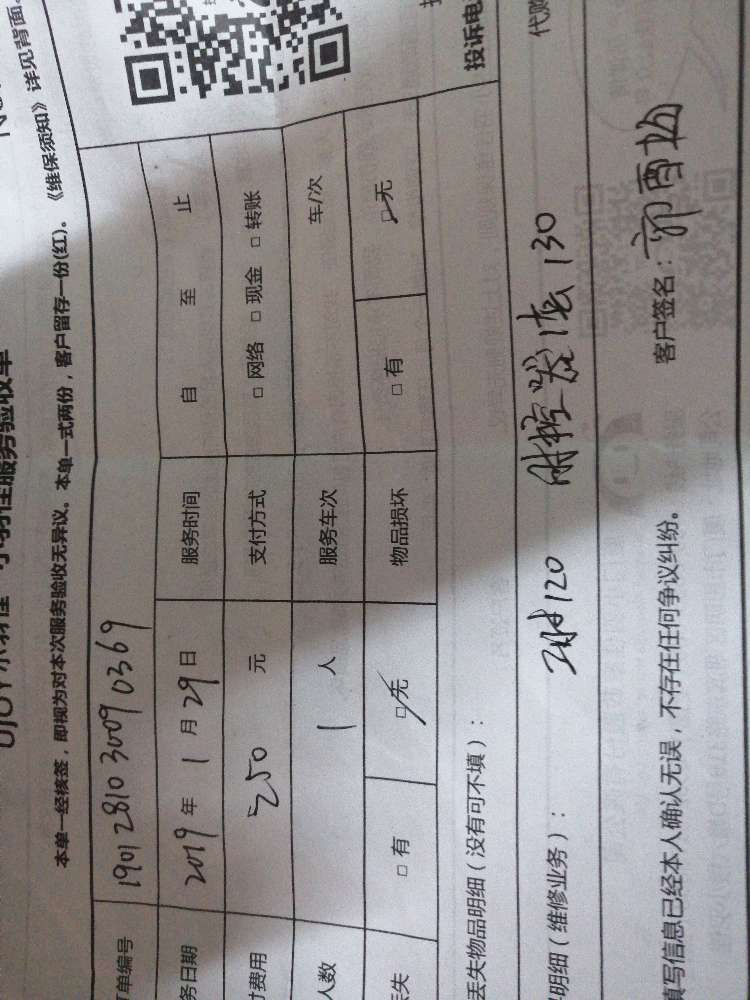 小羽佳服务验收单
本单一经核签，即视为对本次服务验收无异议。本单一式两份，客户留存一份(红)。《维保须知》详见背面。
单编号 1901281030090369
务日期 2019年1月29日 服务时间 自 至 止
费用 250 元 支付方式 □网络 □现金 □转账
人数 1 人 服务车次 车/次
丢失 □有 □无 物品损坏 □有 □无
丢失物品明细（没有可不填）：
明细（维修业务）：
120 130
填写信息已经本人确认无误，不存在任何争议纠纷。 客户签名：
投诉电
代购